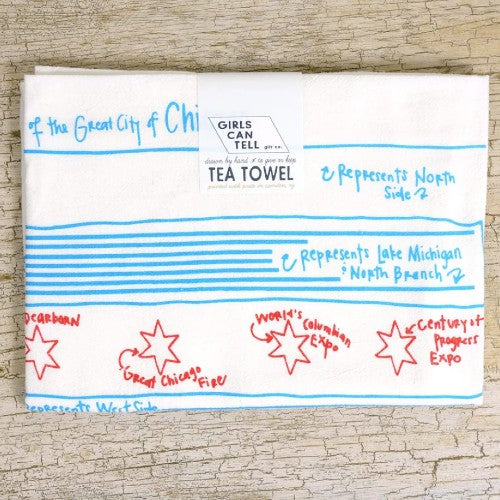 of the Great City of Chi
GIRLS
CAN
TELL
gift co.
drawn by hand to give or keep
TEA TOWEL
printed with pride in camden, nj
Represents North
Side
Represents Lake Michigan
& North Branch
Dearborn
Great Chicago
Fire
World's Columbian
Expo
Century of
Progress
Expo
Represents West Side